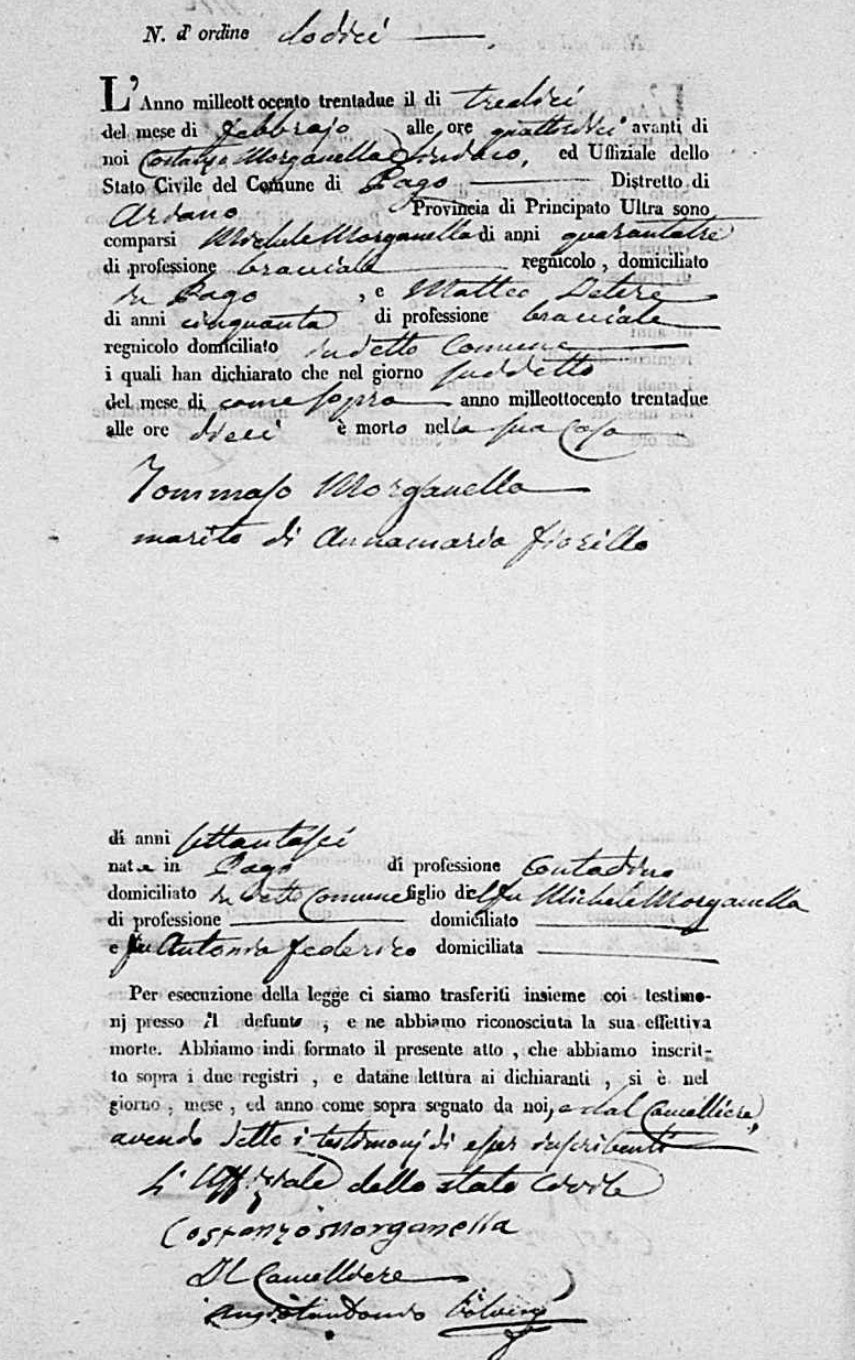 N. d' ordine dodici
L'Anno milleottocento trentadue il di tredici
del mese di febbrajo alle ore quattordici avanti di
noi Costanzo Morganella Sindaco, ed Uffiziale dello
Stato Civile del Comune di Pago Distretto di
Ariano Provincia di Principato Ultra sono
comparsi Michele Morganella di anni quarantatre
di professione bracciale regnicolo, domiciliato
in Pago, e Matteo
di anni cinquanta di professione bracciale
regnicolo domiciliato in detto Comune
i quali han dichiarato che nel giorno suddetto
del mese di come sopra anno milleottocento trentadue
alle ore dieci è morto nella sua Casa
Tommaso Morganella
marito di Annamaria Fiorillo
di anni settantasei
nato in Pago di professione Contadino
domiciliato in detto Comune figlio del fu Michele Morganella
di professione domiciliato
e fu Antonia Federico domiciliata
Per esecuzione della legge ci siamo trasferiti insieme coi testimo-
nj presso il defunto, e ne abbiamo riconosciuta la sua effettiva
morte. Abbiamo indi formato il presente atto, che abbiamo inscrit-
to sopra i due registri, e datane lettura ai dichiaranti, si è nel
giorno, mese, ed anno come sopra segnato da noi, e dal Cancelliere,
avendo detto i testimonj di esser inscribenti
L'Uffiziale dello stato Civile
Costanzo Morganella
Il Cancelliere